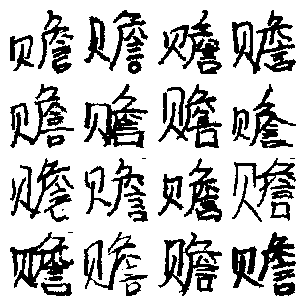 赡赡赡赡
赡赡赡赡
赡赡赡赡
赡赡赡赡